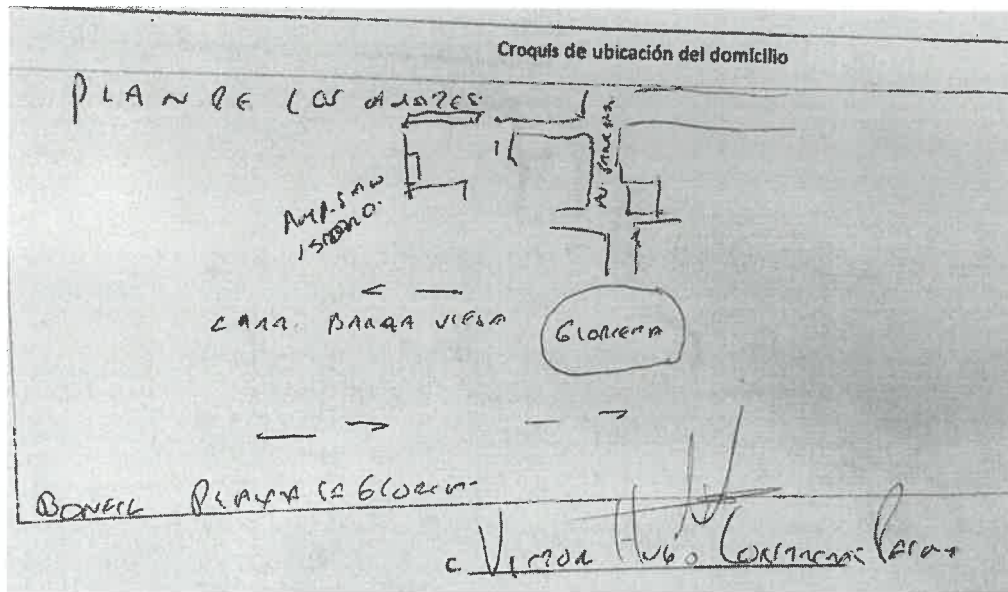 Croquis de ubicación del domicilio
PLAN DE LOS AMATES
AMP. SAN
ISIDRO.
CARR. BARRA VIEJA
GLORIETA
BONFIL PLAYA LA GLORIA
C. VICTOR HUGO CONTRERAS